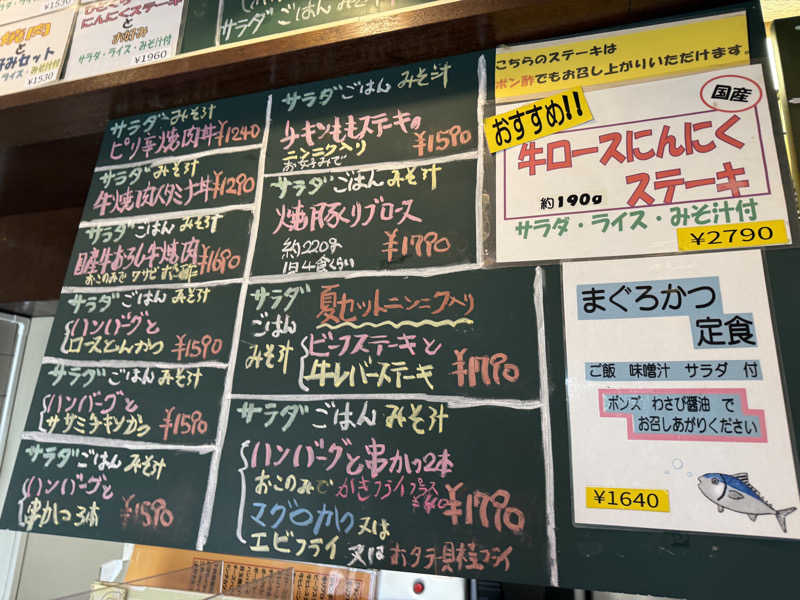 ¥1530
にんにくステーキ
と
サラダ・ライス・みそ汁
¥1960
サラダ ごはん みそ汁
サラダ みそ汁
ピリ辛焼肉丼 ¥1240
サラダ みそ汁
牛焼肉スタミナ丼 ¥1290
サラダ ごはん みそ汁
国産牛おろし牛焼肉 ¥1690
おこのみで ワサビ
サラダ ごはん みそ汁
ハンバーグと
ロースとんかつ ¥1590
サラダ ごはん みそ汁
ハンバーグと
ササミチキンかつ ¥1590
サラダ ごはん みそ汁
ハンバーグと
串かつ3本 ¥1590
サラダ ごはん みそ汁
チキンももステーキの
ニンニク入り
お好みで
¥1590
サラダ ごはん みそ汁
焼豚リブロース
約220g
1日4食くらい
¥1790
サラダ
ごはん
みそ汁
夏カットニンニク入り
ビーフステーキと
牛レバーステーキ
¥1790
サラダ ごはん みそ汁
ハンバーグと串かつ2本
おこのみで かきフライ
¥1790
マグロかつ 又は
エビフライ 又は ホタテ貝柱フライ
こちらのステーキは
ポン酢でもお召し上がりいただけます。
おすすめ!!
国産
牛ロースにんにく
約190g ステーキ
サラダ・ライス・みそ汁付
¥2790
まぐろかつ
定食
ご飯 味噌汁 サラダ 付
ポンズ わさび醤油 で
お召しあがりください
¥1640